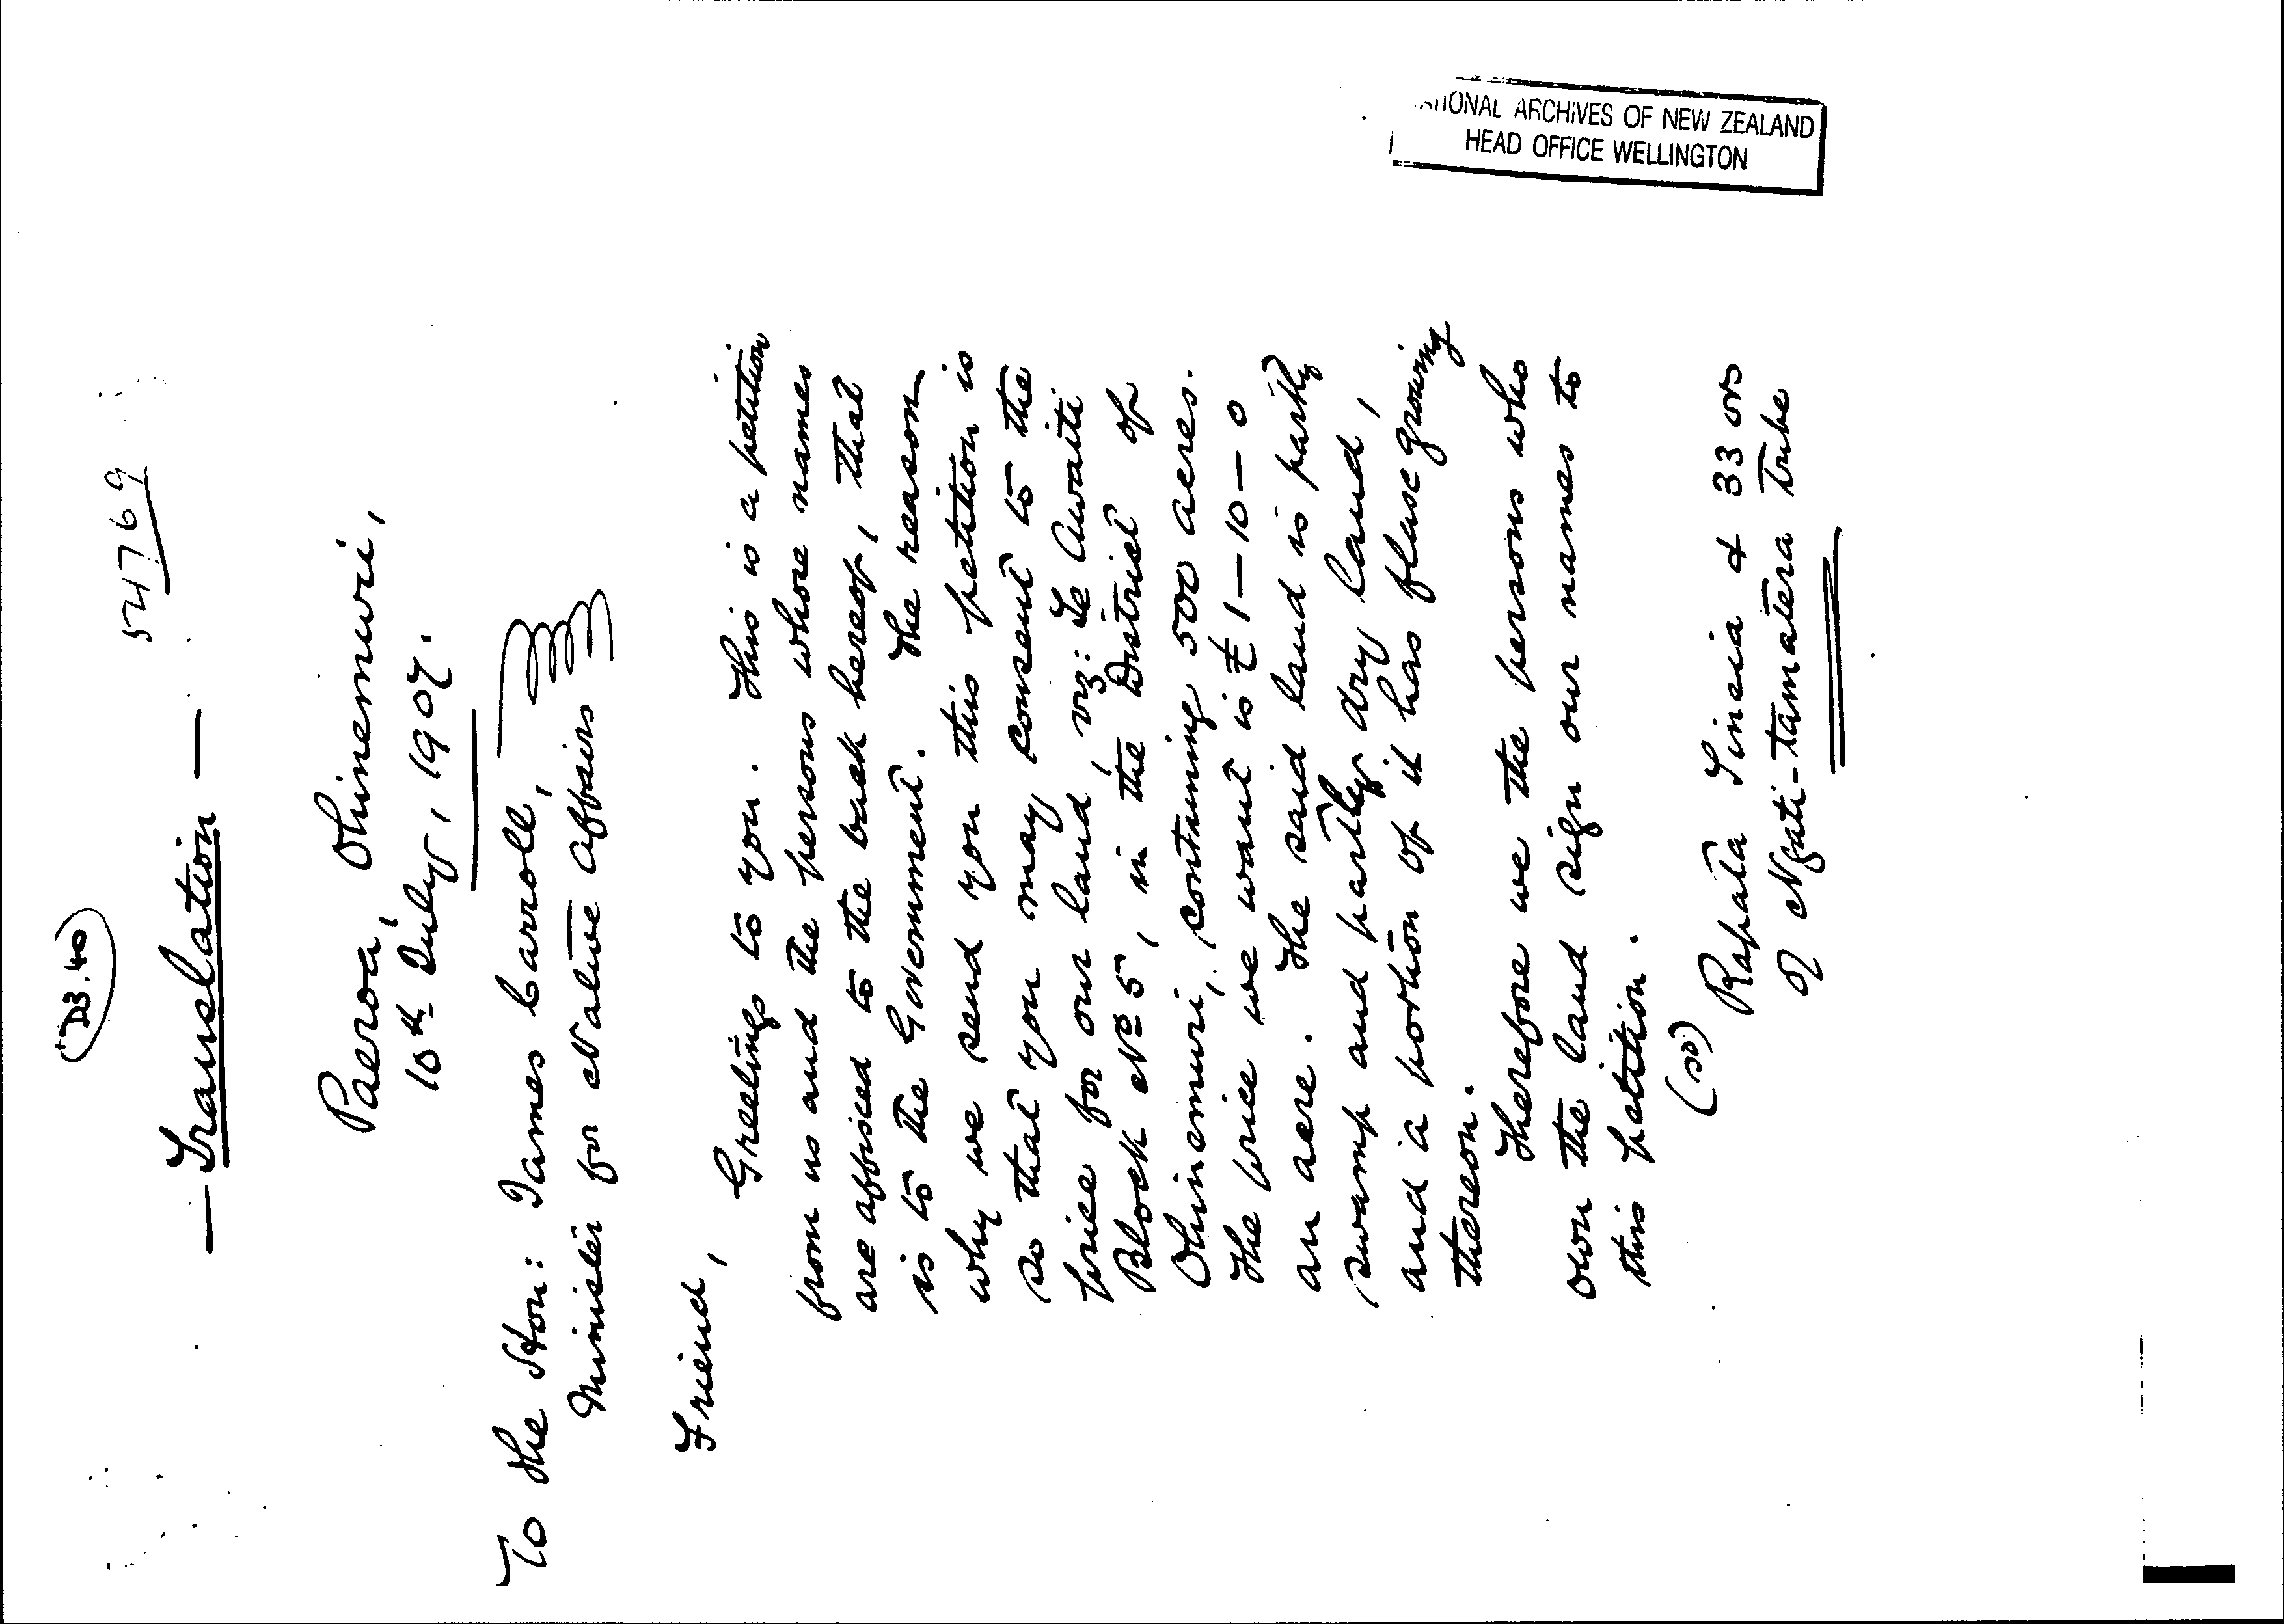 (D3.40)
54769
— Translation —
Paeroa, Ohinemuri,
10th July, 1907.
To the Hon: James Carroll,
Minister for Native Affairs
Friend,
Greetings to you. This is a petition
from us and the persons whose names
are affixed to the back hereof, that
is to the Government. The reason
why we send you this petition is
so that you may consent to the
price for our land, viz: Te Awaiti
Block No 5, in the District of
Ohinemuri, containing 500 acres.
The price we want is £1-10-0
an acre. The said land is partly
swamp and partly dry land,
and a portion of it has flax growing
thereon.
Therefore we the persons who
own the land sign our names to
this petition.
(sd) Rapata Tineia & 33 ors
of Ngati-tamatera Tribe
NATIONAL ARCHIVES OF NEW ZEALAND
HEAD OFFICE WELLINGTON